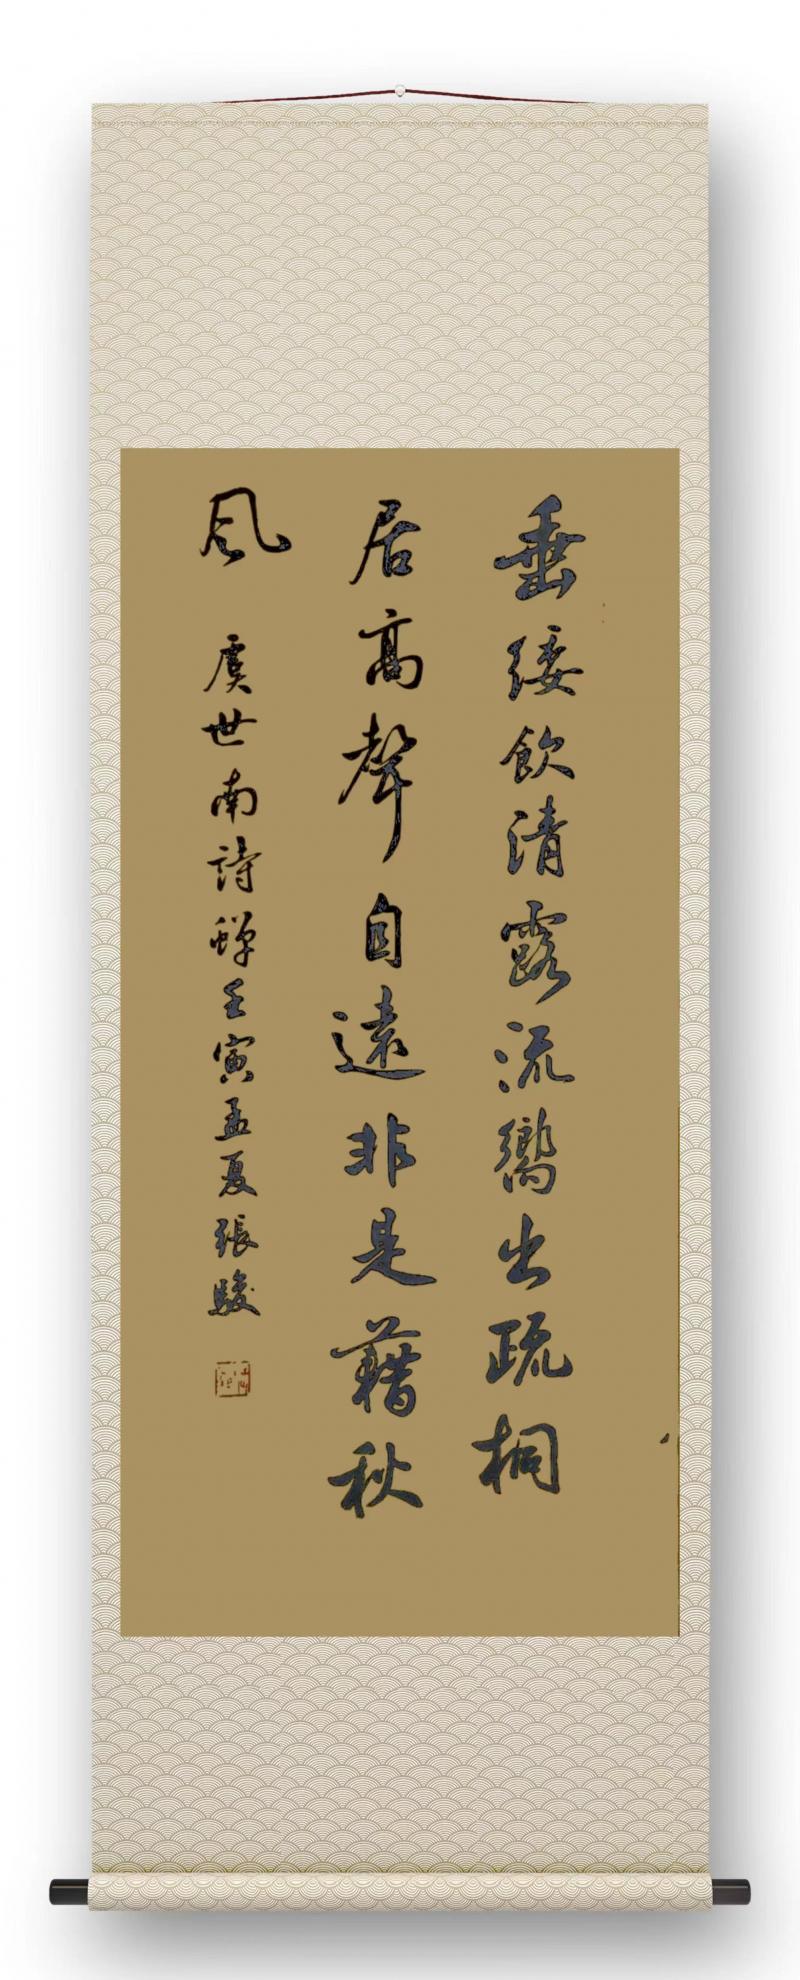 垂緌飲清露流響出疏桐
居高聲自遠非是藉秋
風 虞世南詩蟬壬寅孟夏張駿